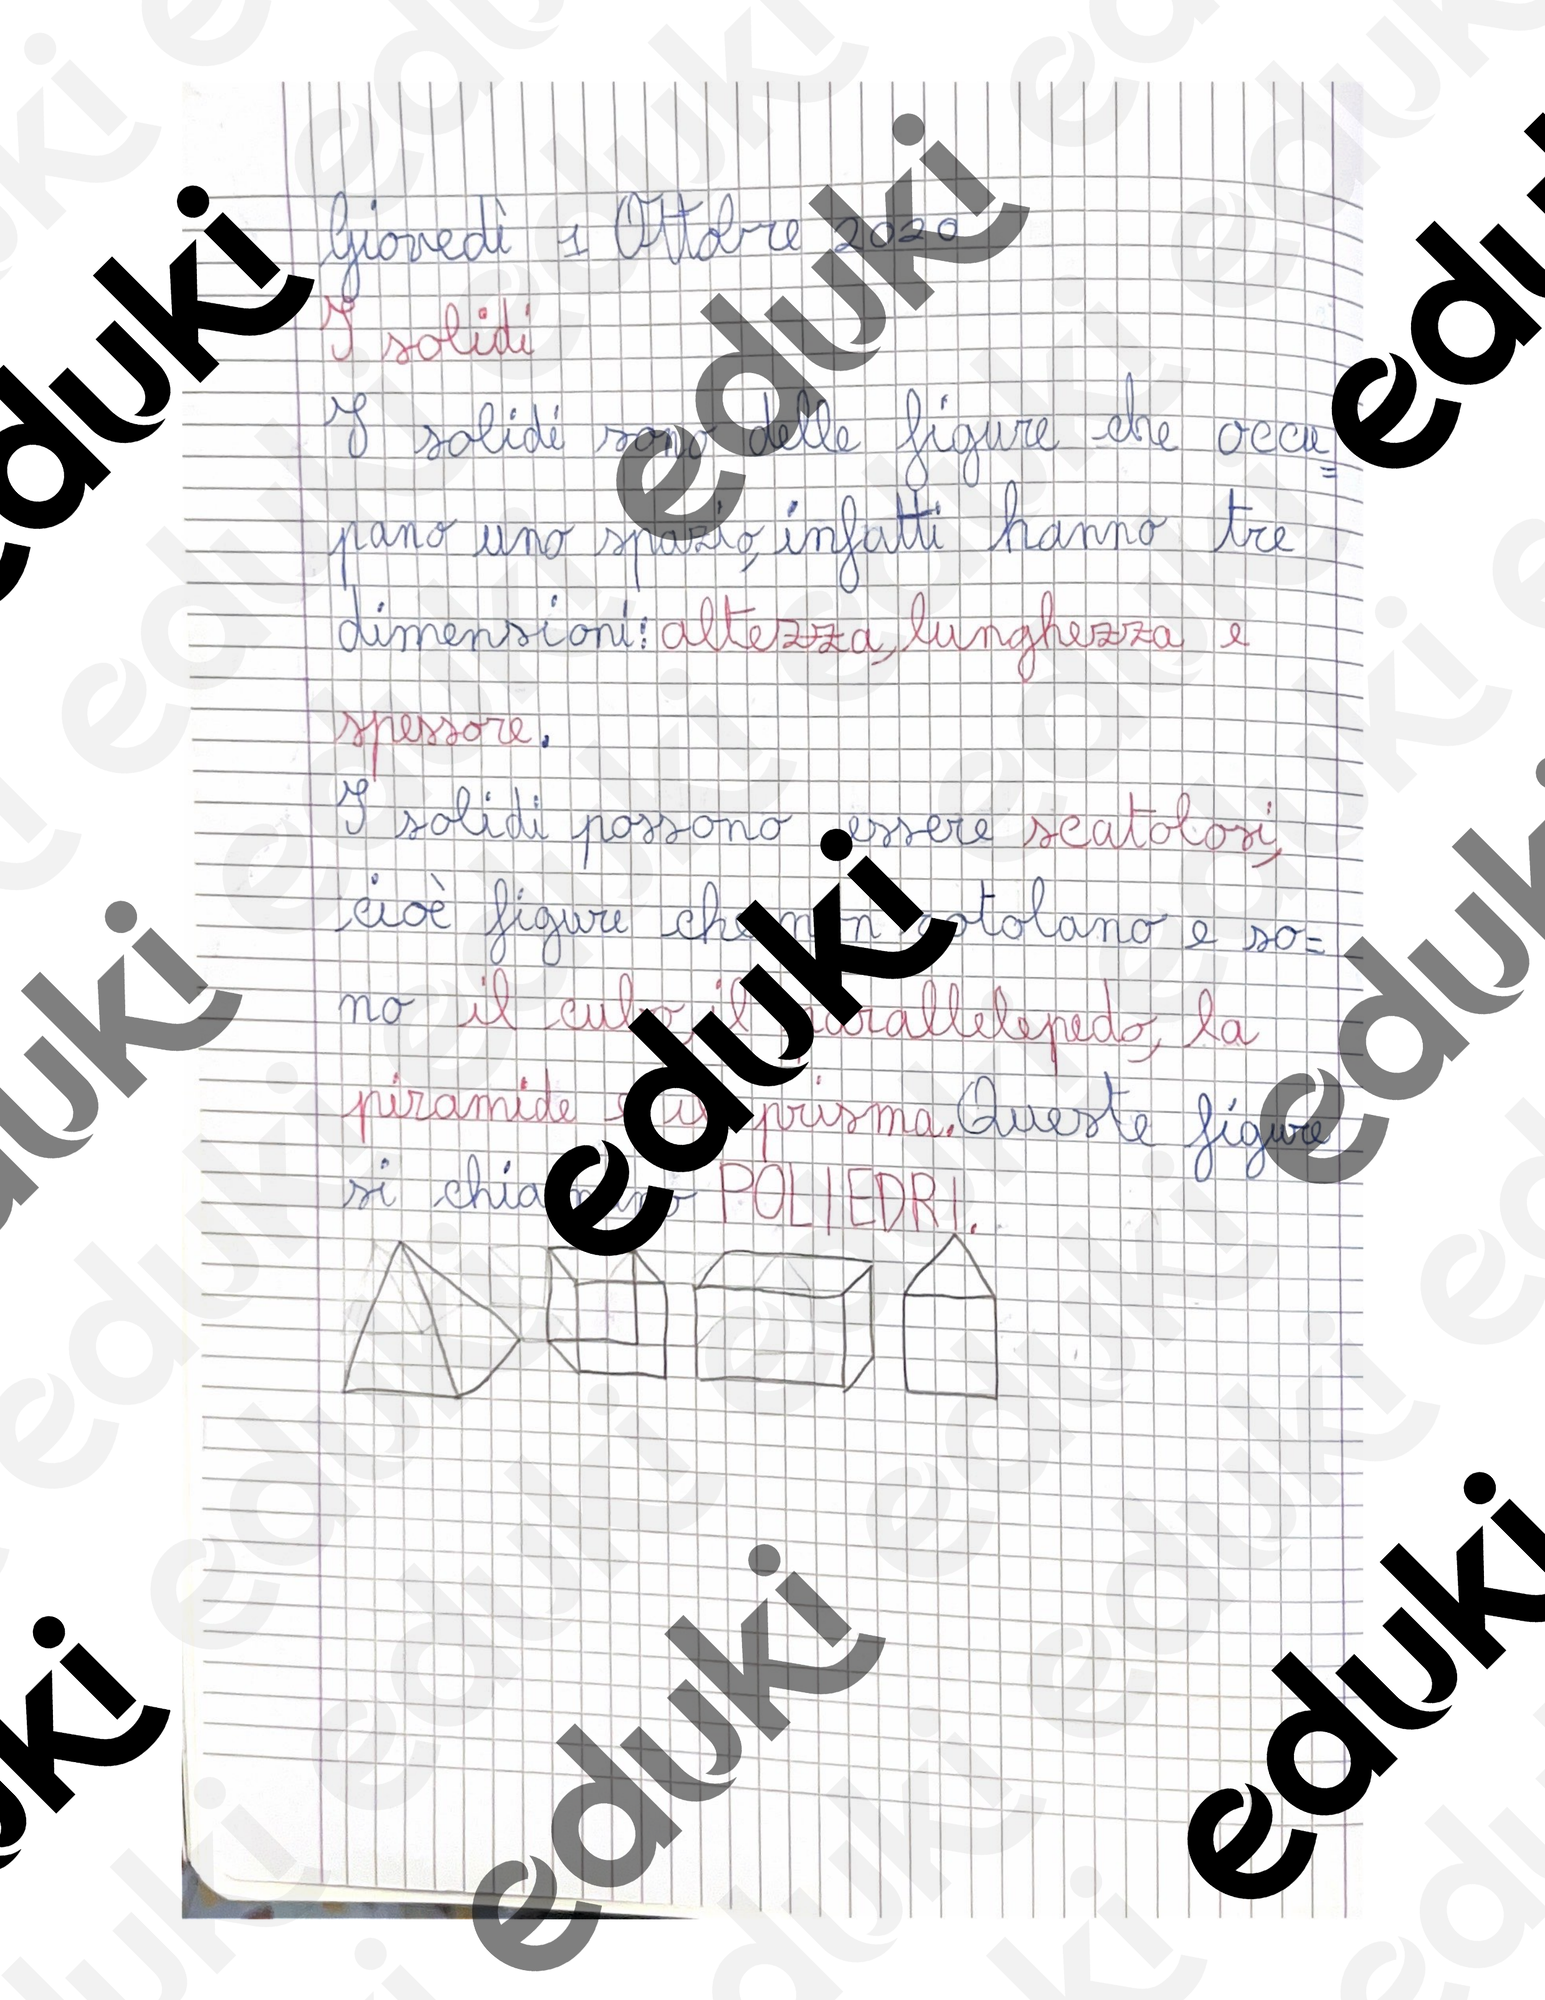 Giovedì 1 Ottobre 2020
I solidi
I solidi sono delle figure che occu=
pano uno spazio, infatti hanno tre
dimensioni: altezza, lunghezza e
spessore.
I solidi possono essere scatolosi,
cioè figure che non rotolano e so=
no il cubo, il parallelepedo, la
piramide e il prisma. Queste figure
si chiamano POLIEDRI.
eduki
eduki
eduki
eduki
eduki
eduki
eduki
eduki
eduki
eduki